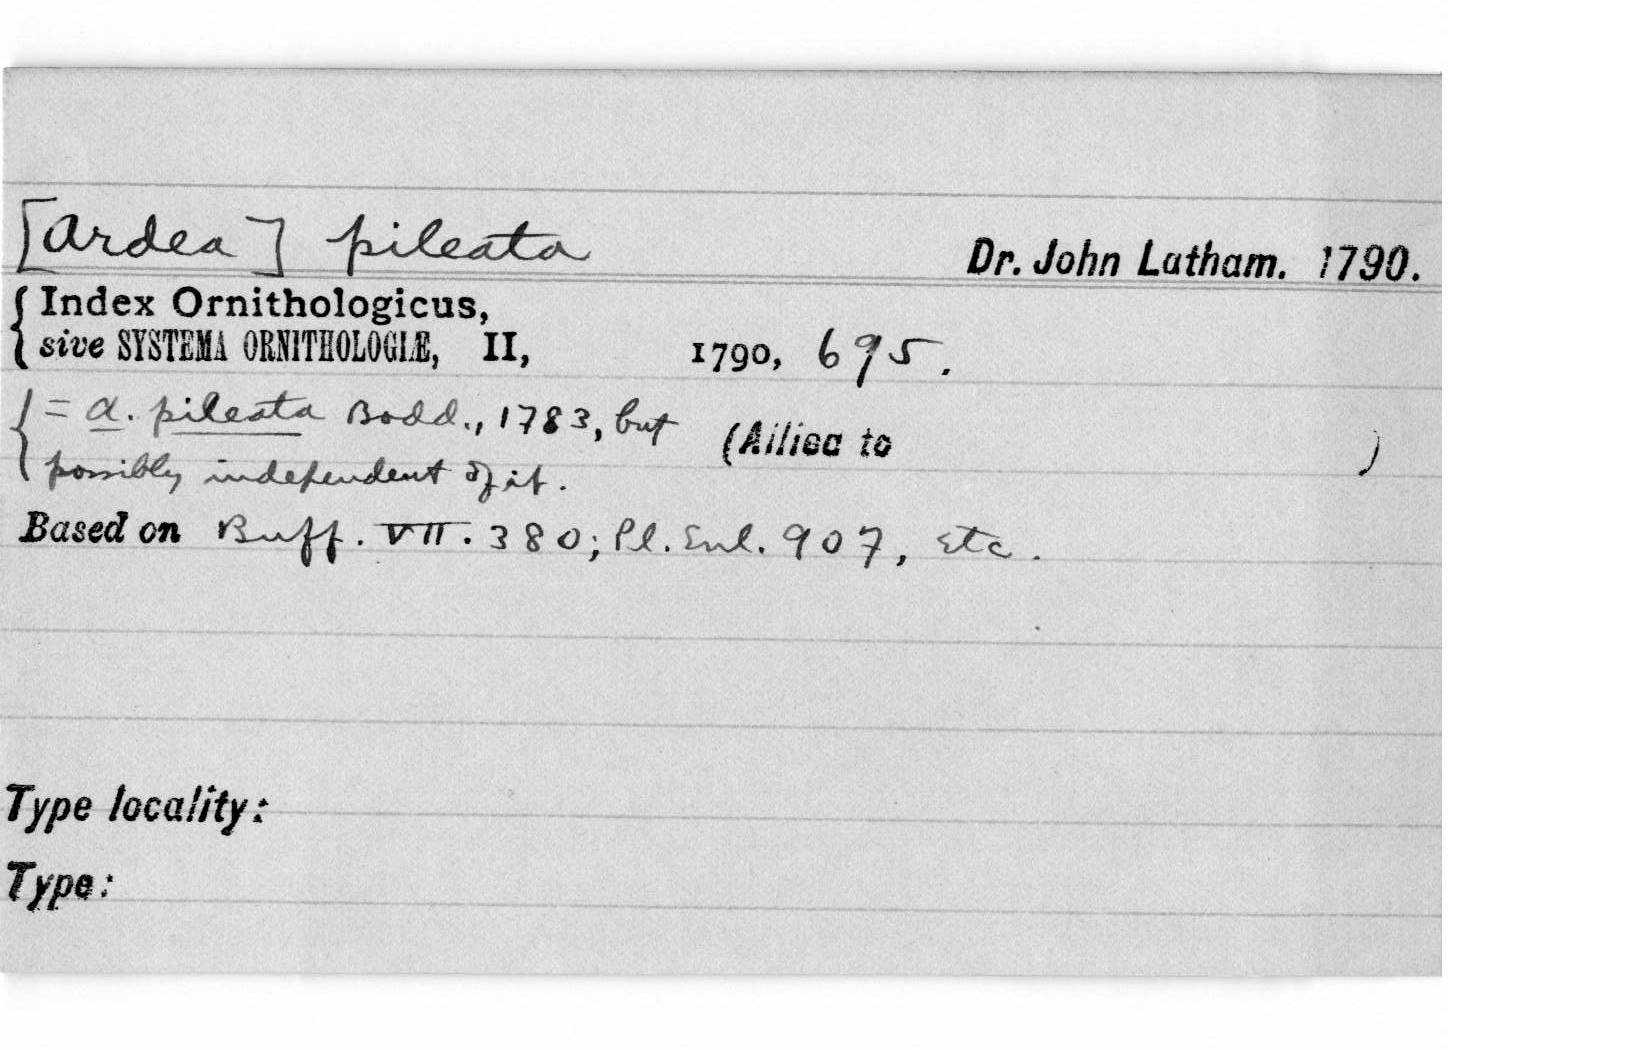 [Ardea] pileata Dr. John Latham. 1790.
{Index Ornithologicus,
sive SYSTEMA ORNITHOLOGIÆ, II, 1790, 695.
{= A. pileata Bodd., 1783, but (Allied to )
possibly independent of it.
Based on Buff. VII. 380; Pl. Enl. 907, etc.
Type locality:
Type: